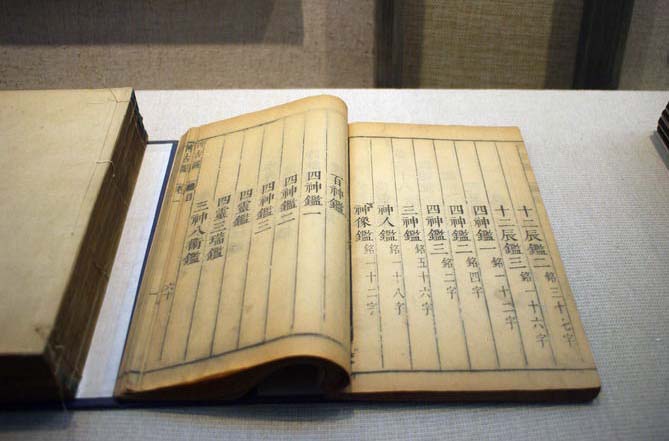 十二辰鑑二 銘三十七字
十二辰鑑三 銘一十六字
四神鑑一 銘一十二字
四神鑑二 銘四字
四神鑑三 銘二字
三神鑑 銘五十六字
神人鑑 銘一十八字
神像鑑 銘一十二字
百神鑑
四神鑑一
四神鑑二
四神鑑三
四靈鑑
四靈三瑞鑑
三神八衛鑑
總目
六十